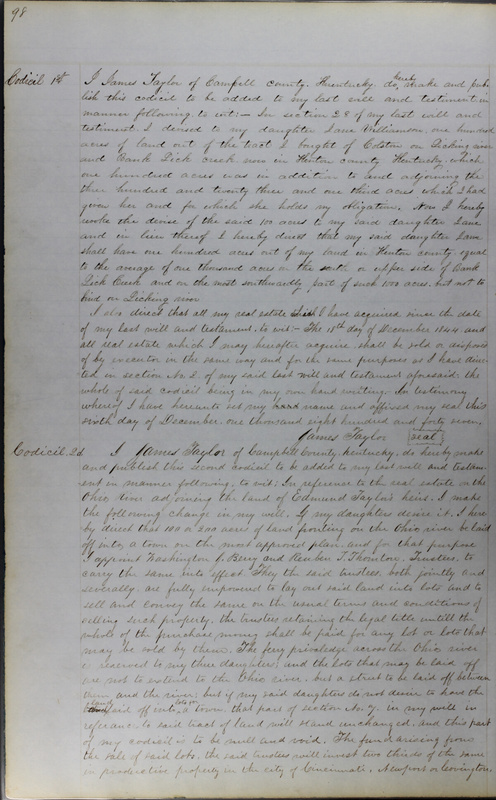 98
Codicil 1st I James Taylor of Campbell county Kentucky do hereby make and pub
lish this codicil to be added to my last will and testament in
manner following, to wit:- In section 28 of my last will and
testament I devised to my daughter Jane Williamson one hundred
acres of land out of the tract I bought of Colston on Licking river
and Bank Lick creek now in Kenton county Kentucky, which
one hundred acres was in addition to land adjoining the
three hundred and twenty three and one third acres which I had
given her and for which she holds my obligation. Now I hereby
revoke the devise of the said 100 acres to my said daughter Jane
and in lieu thereof I hereby direct that my said daughter Jane
shall have one hundred acres out of my land in Kenton county equal
to the average of one thousand acres on the south or upper side of Bank
Lick Creek and on the most southwardly part of such 100 acres. but not to
bind on Licking river
I also direct that all my real estate which I have acquired since the date
of my last will and testament, to wit:- The 18th day of December 1844 and
all real estate which I may hereafter acquire shall be sold or disposed
of by executor in the same way and for the same purposes as I have direc
ted in section No 2 of my said last will and testament aforesaid: the
whole of said codicil being in my own hand writing. In testimony
whereof I have hereunto set my hand name and affixed my seal this
sixth day of December, one thousand eight hundred and forty seven,
James Taylor seal
Codicil 2d I James Taylor of Campbell County, Kentucky, do hereby make
and publish this second codicil to be added to my last will and testam-
ent in manner following, to wit: In reference to the real estate on the
Ohio River adjoining the land of Edmund Taylors heirs. I make
the following change in my will. If my daughters desire it. I here
by direct that 100 or 200 acres of land fronting on the Ohio river be laid
off into a town on the most approved plan and for that purpose
I appoint Washington J. Berry and Reuben T. Thornton, Trustees, to
carry the same into effect. They the said trustees, both jointly and
severally, are fully empowered to lay out said land into lots and to
sell and convey the same on the usual terms and conditions of
selling such property, the trustees retaining the legal title untill the
whole of the purchase money shall be paid for any lot or lots that
may be sold by them. The fery priviledge across the Ohio river
is reserved to my three daughters; and the lots that may be laid off
are not to extend to the Ohio river. but a street to be laid off between
them and the river; but if my said daughters do not desire to have the
land laid off into lots or a town, that part of section No 7, in my will in
referance to said tract of land will stand unchanged, and this part
of my codicil is to be null and void. The fund arising from
the sale of said lots, the said trustees will invest two thirds of the same
in productive property in the city of Cincinnati, Newport or Covington,